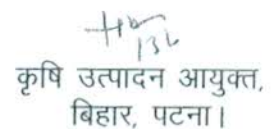 कृषि उत्पादन आयुक्त,
बिहार, पटना।